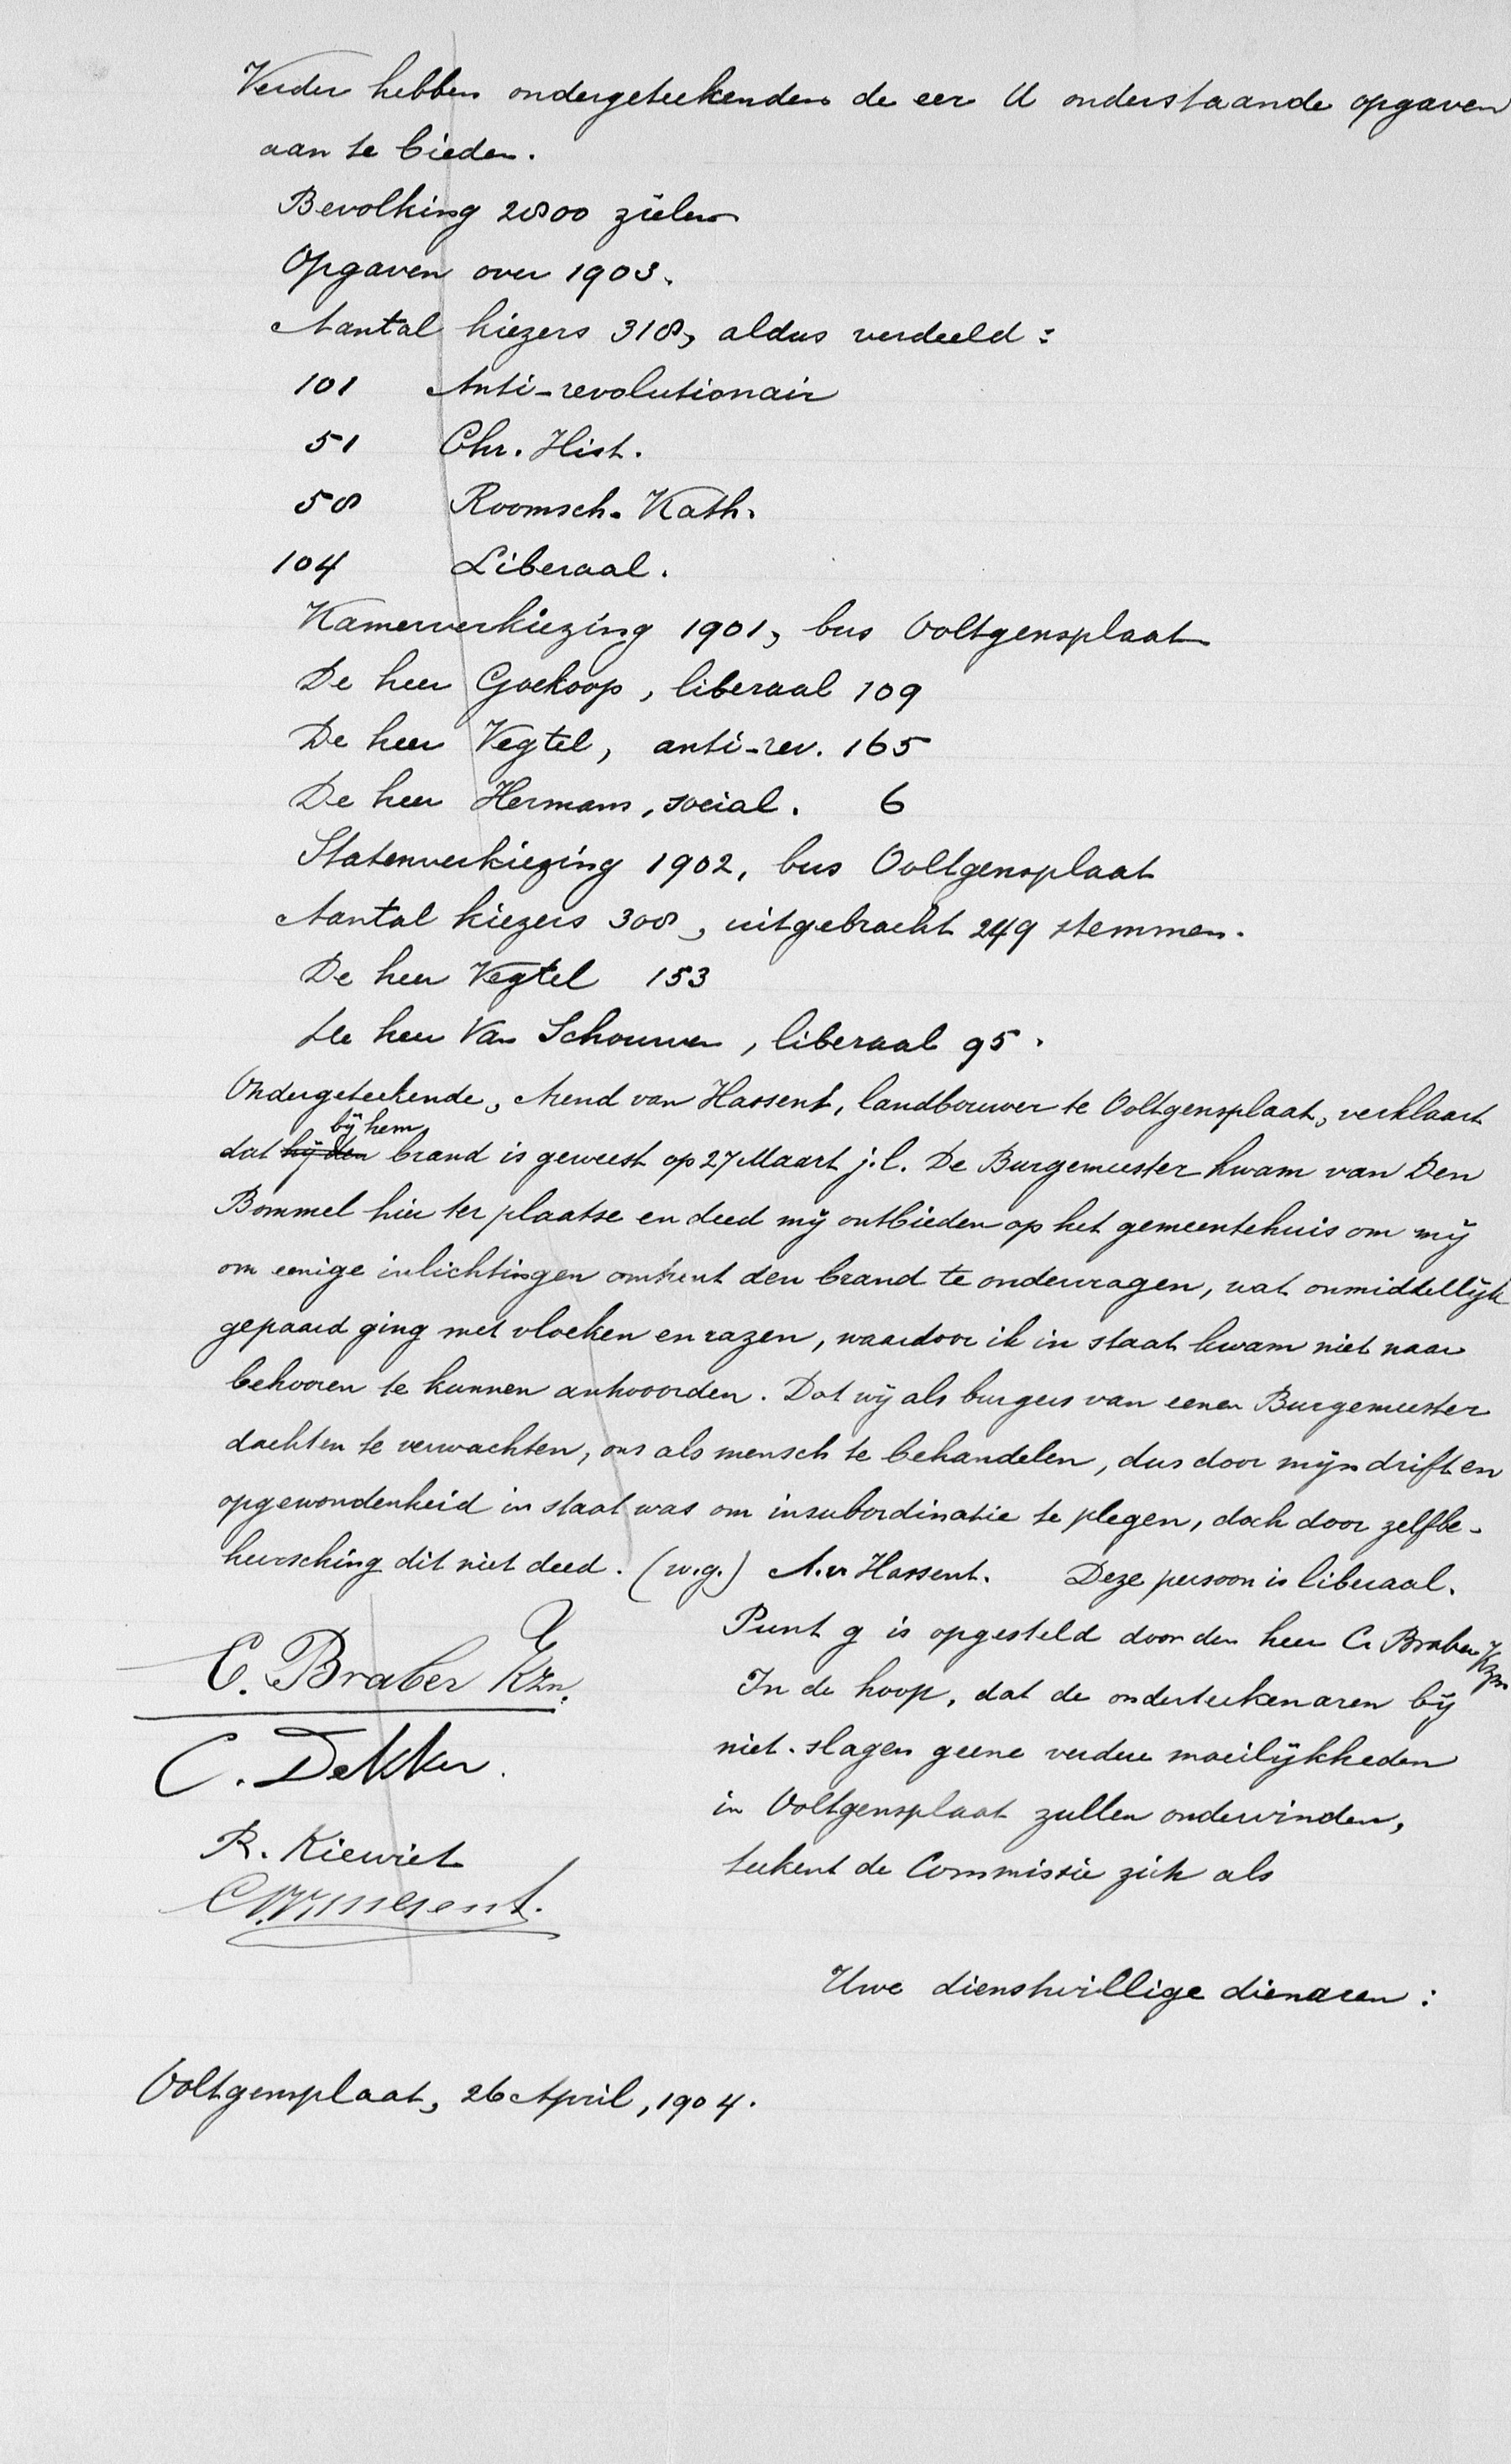 Verder hebben ondergeteekenden de eer U onderstaande opgaven
aan te bieden.
Bevolking 2800 zielen
Opgaven over 1903.
Aantal kiezers 318, aldus verdeeld:
101 Anti-revolutionair
51 Chr. Hist.
58 Roomsch. Kath.
104 Liberaal.
Kamerverkiezing 1901, bus Ooltgensplaat
De heer Goekoop, liberaal 109
De heer Vegtel, anti-rev. 165
De heer Hermans, social. 6
Statenverkiezing 1902, bus Ooltgensplaat
Aantal kiezers 308, uitgebracht 249 stemmen.
De heer Vegtel 153
De heer Van Schouwen, liberaal 95.
Ondergeteekende, Arend van Hassent, landbouwer te Ooltgensplaat, verklaart
bij hem
dat hij den brand is geweest op 27 Maart j.l. De Burgemeester kwam van Den
Bommel hier ter plaatse en deed mij ontbieden op het gemeentehuis om mij
om eenige inlichtingen omtrent den brand te ondervragen, wat onmiddellijk
gepaard ging met vloeken en razen, waardoor ik in staat kwam niet naar
behooren te kunnen antwoorden. Dat wij als burgers van eenen Burgemeester
dachten te verwachten, ons als mensch te behandelen, dus door mijn drift en
opgewondenheid in staat was om insubordinatie te plegen, doch door zelfbe-
heersching dit niet deed. (w.g.) A. v. Hassent. Deze persoon is liberaal.
Punt g is opgesteld door den heer C. Braber Kzn
In de hoop, dat de onderteekenaren bij
niet-slagen geene verdere moeilijkheden
in Ooltgensplaat zullen ondervinden,
teekent de Commissie zich als
C. Braber Kzn.
C. Dekker.
R. Kiewiet
Uwe dienstwillige dienaren:
Ooltgensplaat, 26 April, 1904.